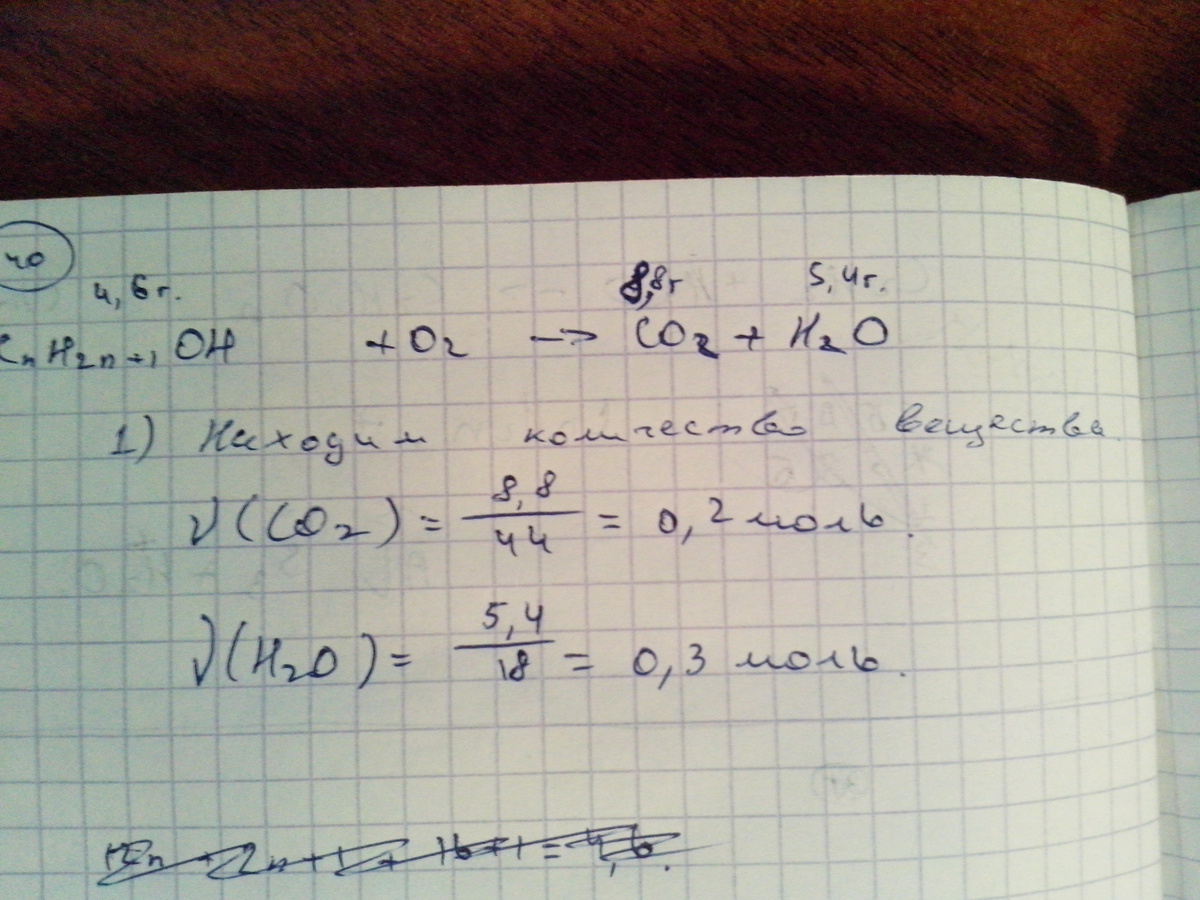 40
4,6 г. 8,8 г 5,4 г.
CnH2n+1OH + O2 → CO2 + H2O
1) Находим количество вещества.
ν(CO2) = 8,8/44 = 0,2 моль.
ν(H2O) = 5,4/18 = 0,3 моль.
12n + 2n + 1 + 16 + 1 = 4,6.